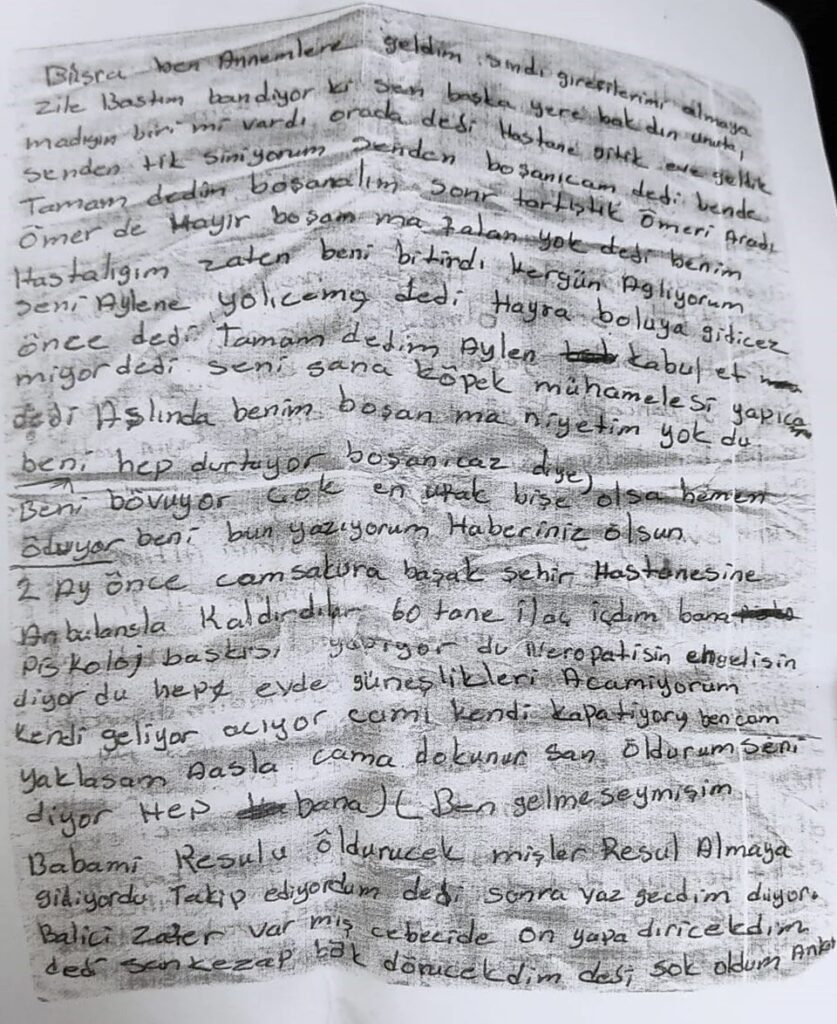 Büsra ben Annemlere geldim şimdi giresilerimi almaya
zile Bastım bandiyor ki sen başka yere bakdın unuta,
madıgın biri mi vardı orada dedi Hastane gitik eve geldik
senden tik siniyorum Senden boşanıcam dedi bende
Tamam dedim boşanalım sonr tartıştık Ömeri Aradı
Ömer de Hayır boşam ma falan yok dedi benim
Hastalıgım zaten beni bitirdi hergün Aglıyorum
seni Aylene yolıcamg dedi Hayra boluya gidicez
önce dedi Tamam dedim Aylen kabul et
miyor dedi seni sana köpek mühamelesi yapıca
dedi Aslında benim boşan ma niyetim yok du
beni hep durtuyor boşanıcaz diye)
Beni bövuyor çok en ufak bişe olsa hemen
öduyor beni bun yazıyorum Haberiniz olsun
2 Ay önce camsakura başak şehir Hastanesine
Anbulansla Kaldırdılar 60 tane ilaç içdim bana
Piskoloj baskısı yapıyor du Neropatisin engelisin
diyor du hep evde güneşlikleri Acamıyorum
kendi geliyor acıyor camı kendi kapatiyory ben cam
yaklasam Aasla cama dokunur san öldurum seni
diyor Hep bana) ( Ben gelmeseymişim
Babamı Resulu öldurucek mişler Resul Almaya
gidiyordu Takip ediyordum dedi sonra vaz gecdim diyor.
Balici Zafer var mış cebecide on yapa dırıcekdim
dedi san kezap bak dönucekdim dedi şok oldum Ankar